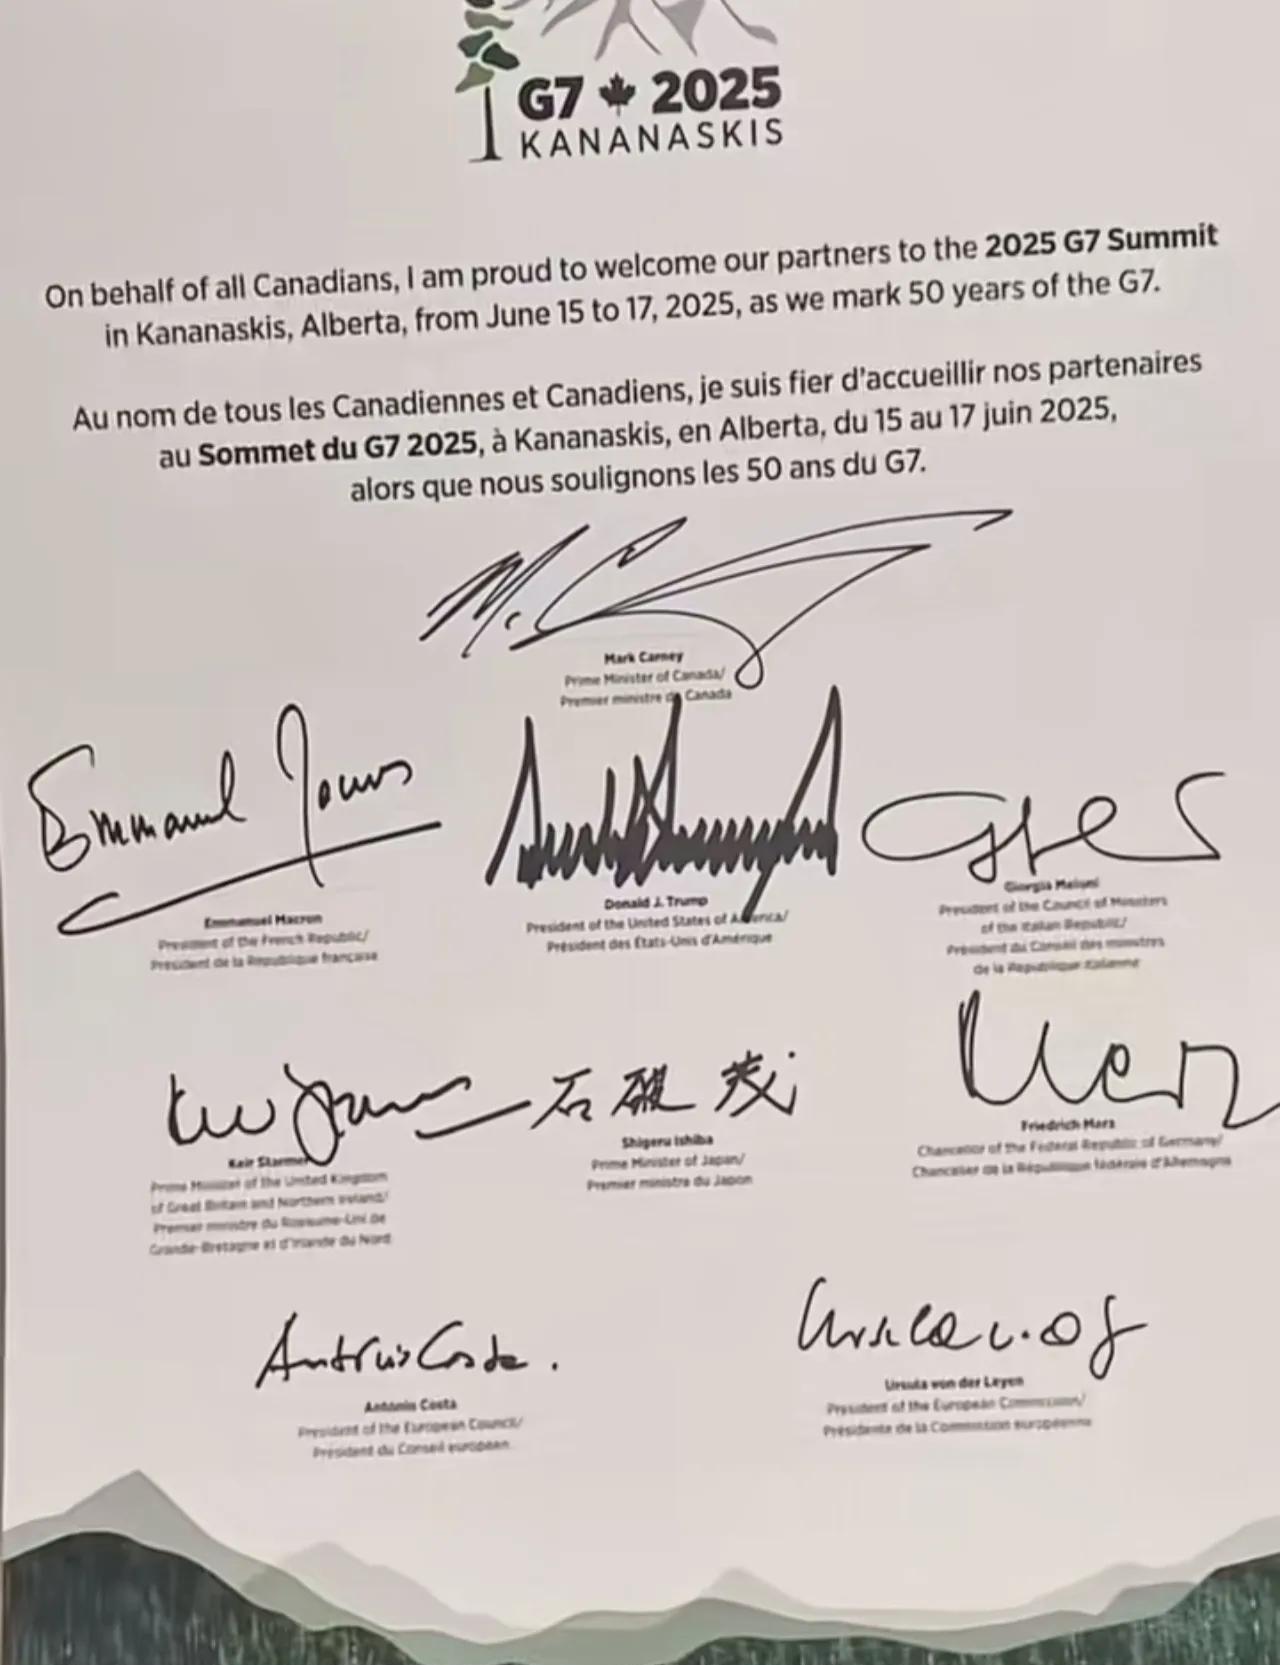 G7 2025
KANANASKIS
On behalf of all Canadians, I am proud to welcome our partners to the 2025 G7 Summit
in Kananaskis, Alberta, from June 15 to 17, 2025, as we mark 50 years of the G7.
Au nom de tous les Canadiennes et Canadiens, je suis fier d'accueillir nos partenaires
au Sommet du G7 2025, à Kananaskis, en Alberta, du 15 au 17 juin 2025,
alors que nous soulignons les 50 ans du G7.
M. C
Mark Carney
Prime Minister of Canada/
Premier ministre du Canada
Emmanuel
Emmanuel Macron
President of the French Republic/
Président de la République française
Donald J. Trump
President of the United States of America/
Président des États-Unis d'Amérique
Giorgia Meloni
President of the Council of Ministers
of the Italian Republic/
Président du Conseil des ministres
de la République italienne
Keir Starmer
Prime Minister of the United Kingdom
of Great Britain and Northern Ireland/
Premier ministre du Royaume-Uni de
Grande-Bretagne et d'Irlande du Nord
石破茂
Shigeru Ishiba
Prime Minister of Japan/
Premier ministre du Japon
Merz
Friedrich Merz
Chancellor of the Federal Republic of Germany/
Chancelier de la République fédérale d'Allemagne
António Costa.
António Costa
President of the European Council/
Président du Conseil européen
Ursula
Ursula von der Leyen
President of the European Commission/
Présidente de la Commission européenne